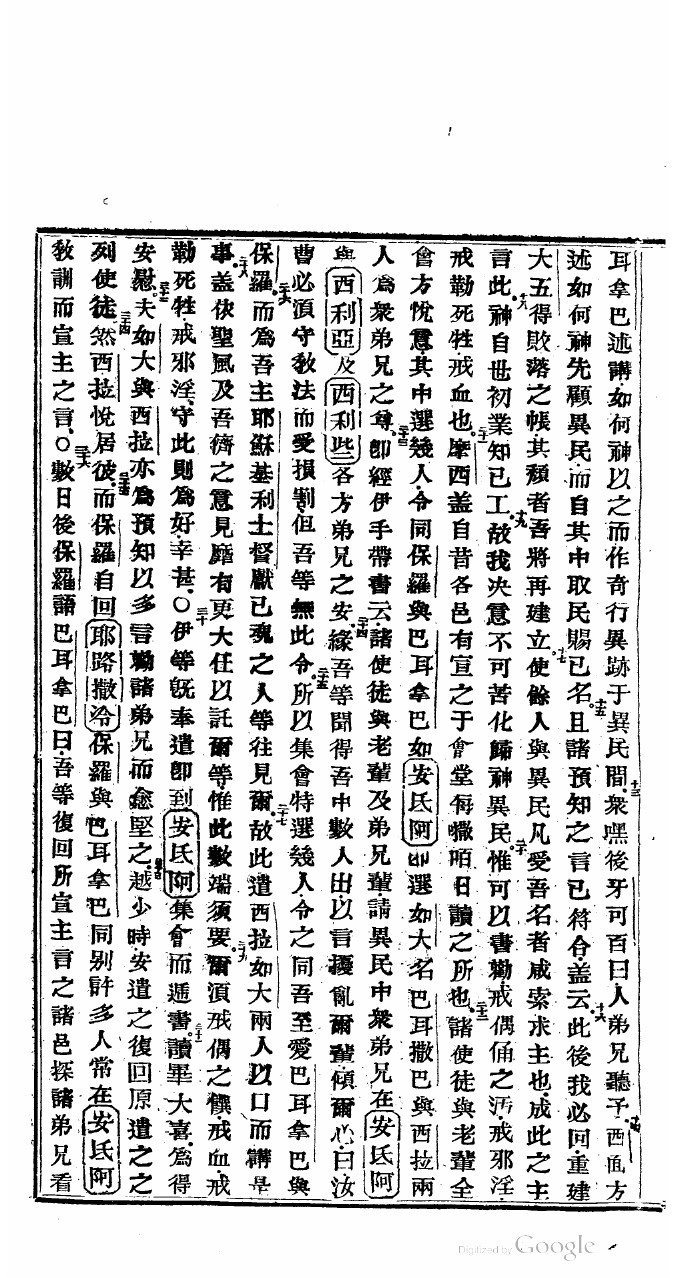 耳拿巴述講如何神以之而作奇行異跡于異民間衆嘿後牙可百曰人弟兄聽予西面方
述如何神先顧異民而自其中取民賜己名且諸預知之言已符合蓋云此後我必回重建
大五得敗落之帳其頹者吾將再建立使餘人與異民凡愛吾名者咸索求主也成此之主
言此神自世初業知已工故我决意不可苦化歸神異民惟可以書勸戒偶俑之污戒邪淫
戒勒死牲戒血也摩西蓋自昔各邑有宣之于會堂每撒咟日讀之所也諸使徒與老輩全
會方悅意其中選幾人令同保羅與巴耳拿巴如安氐阿即選如大名巴耳撒巴與西拉兩
人爲衆弟兄之尊即經伊手帶書云諸使徒與老輩及弟兄輩請異民中衆弟兄在安氐阿
與西利亞及西利些各方弟兄之安緣吾等聞得吾中數人出以言擾亂爾輩傾爾心曰汝
曹必須守敎法而受損割但吾等無此令所以集會特選幾人令之同吾至愛巴耳拿巴與
保羅而爲吾主耶穌基利士督獻己魂之人等往見爾故此遣西拉如大兩人以口而講是
事蓋依聖風及吾儕之意見靡有更大任以託爾等惟此數端須要爾須戒偶之饌戒血戒
勒死牲戒邪淫守此則爲好幸甚〇伊等旣奉遣即到安氐阿集會而遞書讀畢大喜爲得
安慰夫如大與西拉亦爲預知以多言勸諸弟兄而愈堅之越少時安遣之復回原遣之之
列使徒然西拉悅居彼而保羅自回耶路撒冷保羅與巴耳拿巴同别許多人常在安氐阿
敎訓而宣主之言〇數日後保羅語巴耳拿巴曰吾等復回所宣主言之諸邑探諸弟兄看
Digitized by Google